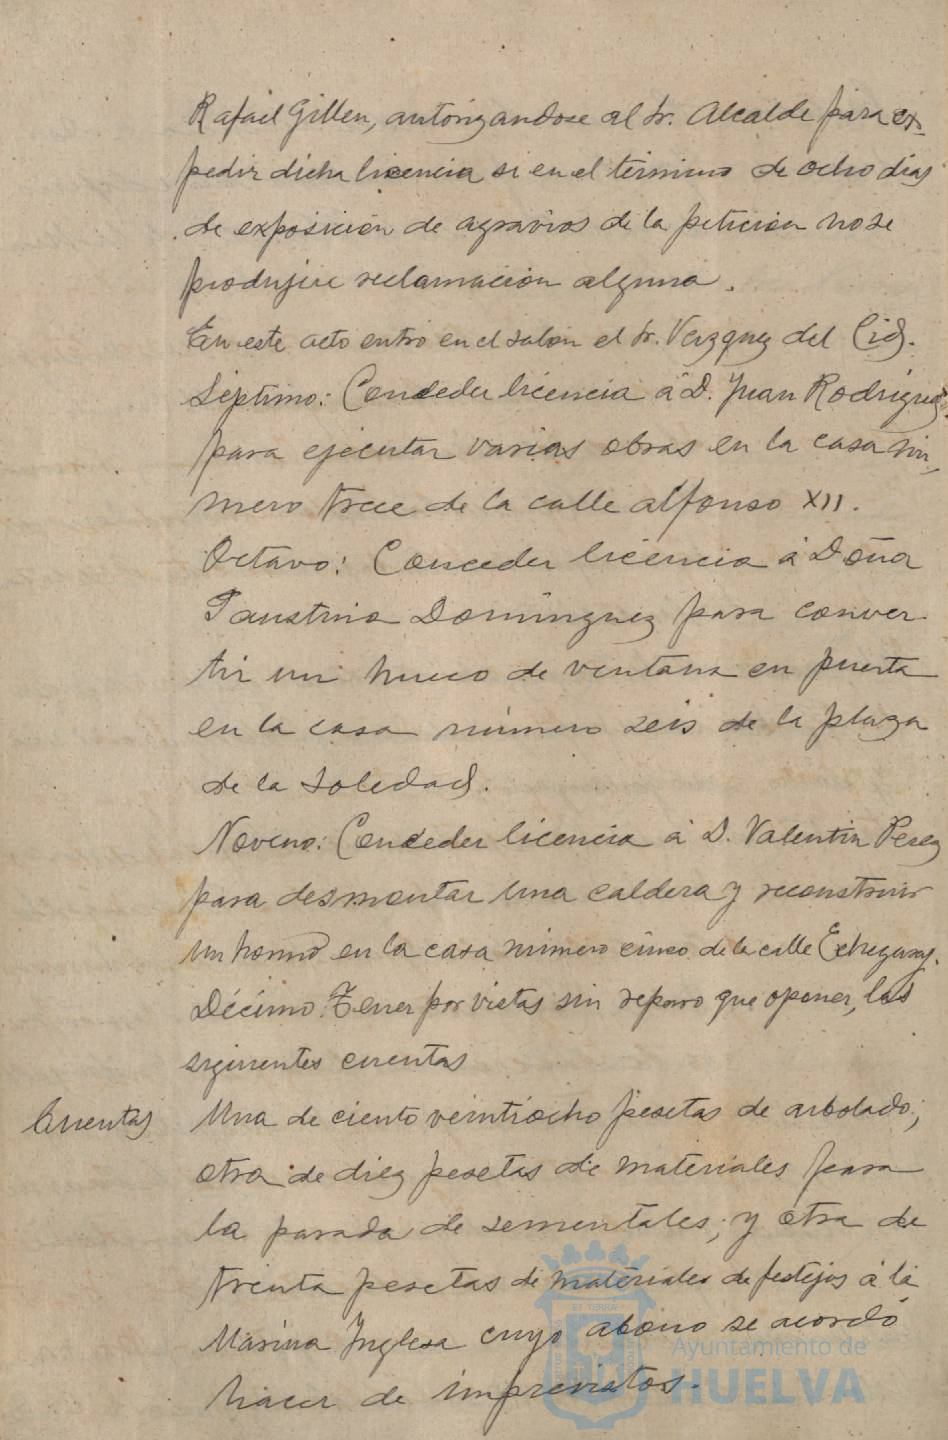 Rafael Gillen, autorizandose al Sr. Alcalde para ex-
pedir dicha licencia si en el término de ocho dias
de exposición de agravios de la petición no se
produjere reclamación alguna.
En este acto entró en el salon el Sr. Vazquez del Cid.
Séptimo: Conceder licencia á D. Juan Rodriguez
para ejecutar varias obras en la casa nú-
mero trece de la calle Alfonso XII.
Octavo: Conceder licencia á Doña
Faustina Dominguez para conver-
tir un hueco de ventana en puerta
en la casa número seis de la plaza
de la Soledad.
Noveno: Conceder licencia á D. Valentin Perez
para desmontar una caldera y reconstruir
un horno en la casa número cinco de la calle Echegaray.
Décimo: Tener por vistas sin reparo que oponer, las
siguientes cuentas
Cuentas
Una de ciento veintiocho pesetas de arbolado;
otra de diez pesetas de materiales para
la parada de sementales; y otra de
treinta pesetas de materiales de festejos á la
Marina Inglesa cuyo abono se acordó
hacer de imprevistos.
Ayuntamiento de
HUELVA